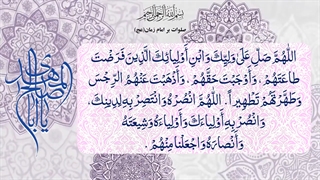 بسم الله الرحمن الرحیم
صلوات بر امام زمان(عج)
اَللّهُمَّ صَلِّ عَلىٰ وَلِيِّكَ وَابْنِ أَوْلِيائِكَ الَّذينَ فَرَضْتَ
طاعَتَهُمْ، وَأَوْجَبْتَ حَقَّهُمْ، وَأَذْهَبْتَ عَنْهُمُ الرِّجْسَ
وَطَهَّرْتَهُمْ تَطْهيراً. اَللّهُمَّ انْصُرْهُ وَانْتَصِرْ بِهِ لِدينِكَ،
وَانْصُرْ بِهِ أَوْلِياءَكَ وَأَوْلِياءَهُ وَشيعَتَهُ
وَأَنْصارَهُ وَاجْعَلْنا مِنْهُمْ.